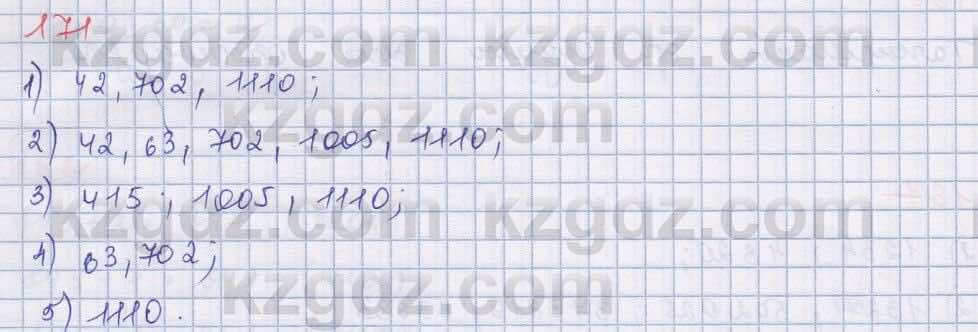 171
1) 42, 702, 1110;
2) 42, 63, 702, 1005, 1110;
3) 415; 1005, 1110;
4) 63, 702;
5) 1110.
kzgdz.com kzgdz.com
kzgdz.com
kzgdz.com kzgdz.com
kzgdz.com